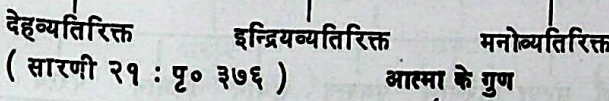 देहव्यतिरिक्त इन्द्रियव्यतिरिक्त मनोव्यतिरिक्त
( सारणी २१ : पृ० ३७६ ) आत्मा के गुण